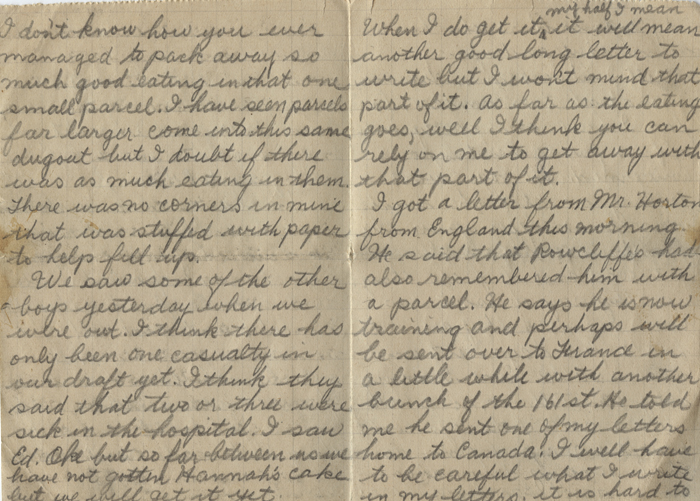 I don't know how you ever
managed to pack away so
much good eating in that one
small parcel. I have seen parcels
far larger come into this same
dugout but I doubt if there
was as much eating in them.
There was no corners in mine
that was stuffed with paper
to help fill up.
We saw some of the other
boys yesterday when we
were out. I think there has
only been one casualty in
our draft yet. I think they
said that two or three were
sick in the hospital. I saw
Ed. Oke but so far between us we
have not gotten Hannah's cake
but we will get it yet.
my half I mean
When I do get it, it will mean
another good long letter to
write but I won't mind that
part of it. As far as the eating
goes, well I think you can
rely on me to get away with
that part of it.
I got a letter from Mr. Horton
from England this morning.
He said that Rowcliffe's had
also remembered him with
a parcel. He says he is now
training and perhaps will
be sent over to France in
a little while with another
bunch of the 161st. He told
me he sent one of my letters
home to Canada. I will have
to be careful what I write
in my letters. it is hard to